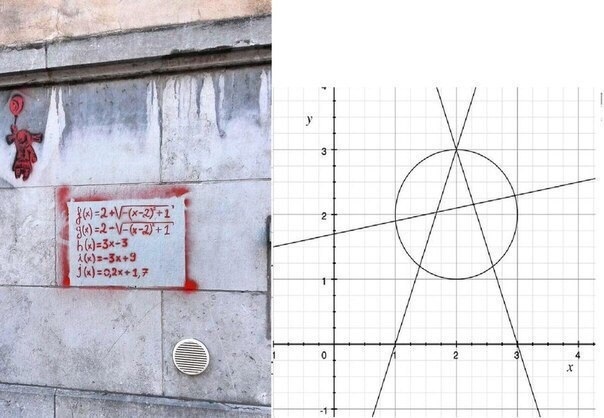 f(x)=2+√-(x-2)²+1
g(x)=2-√-(x-2)²+1
h(x)=3x-3
i(x)=-3x+9
j(x)=0,2x+1,7
4
y
3
2
1
0 1 2 3 4
x
-1